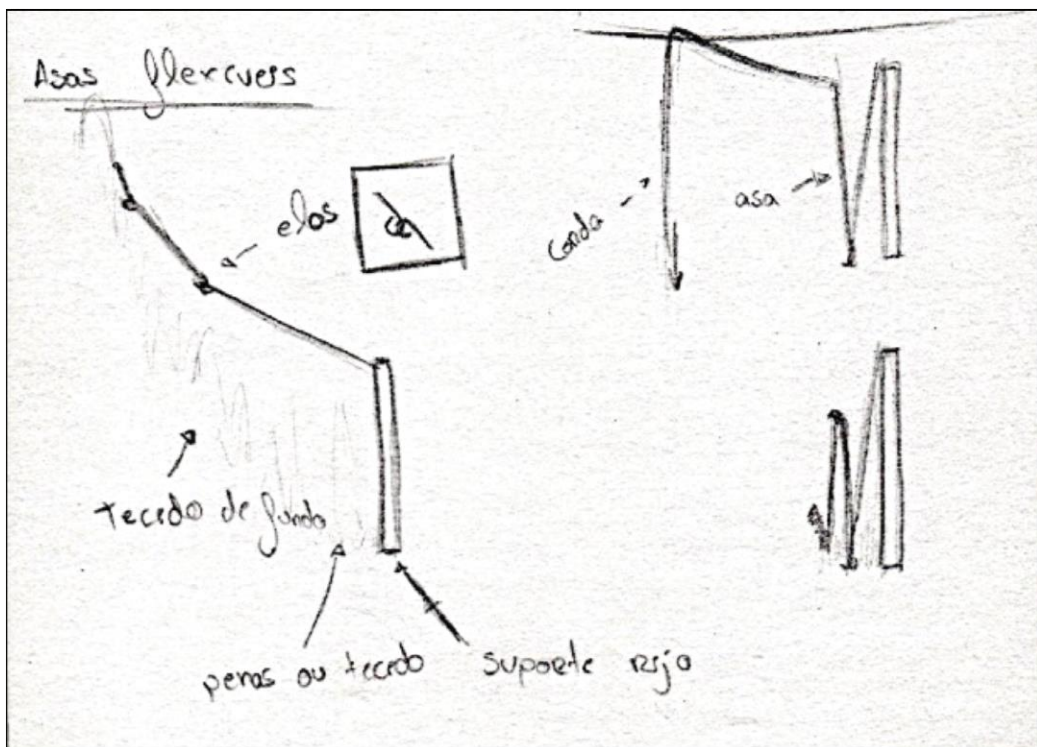 Asas flexíveis
elos
corda
asa
tecido de fundo
penas ou tecido
suporte rijo